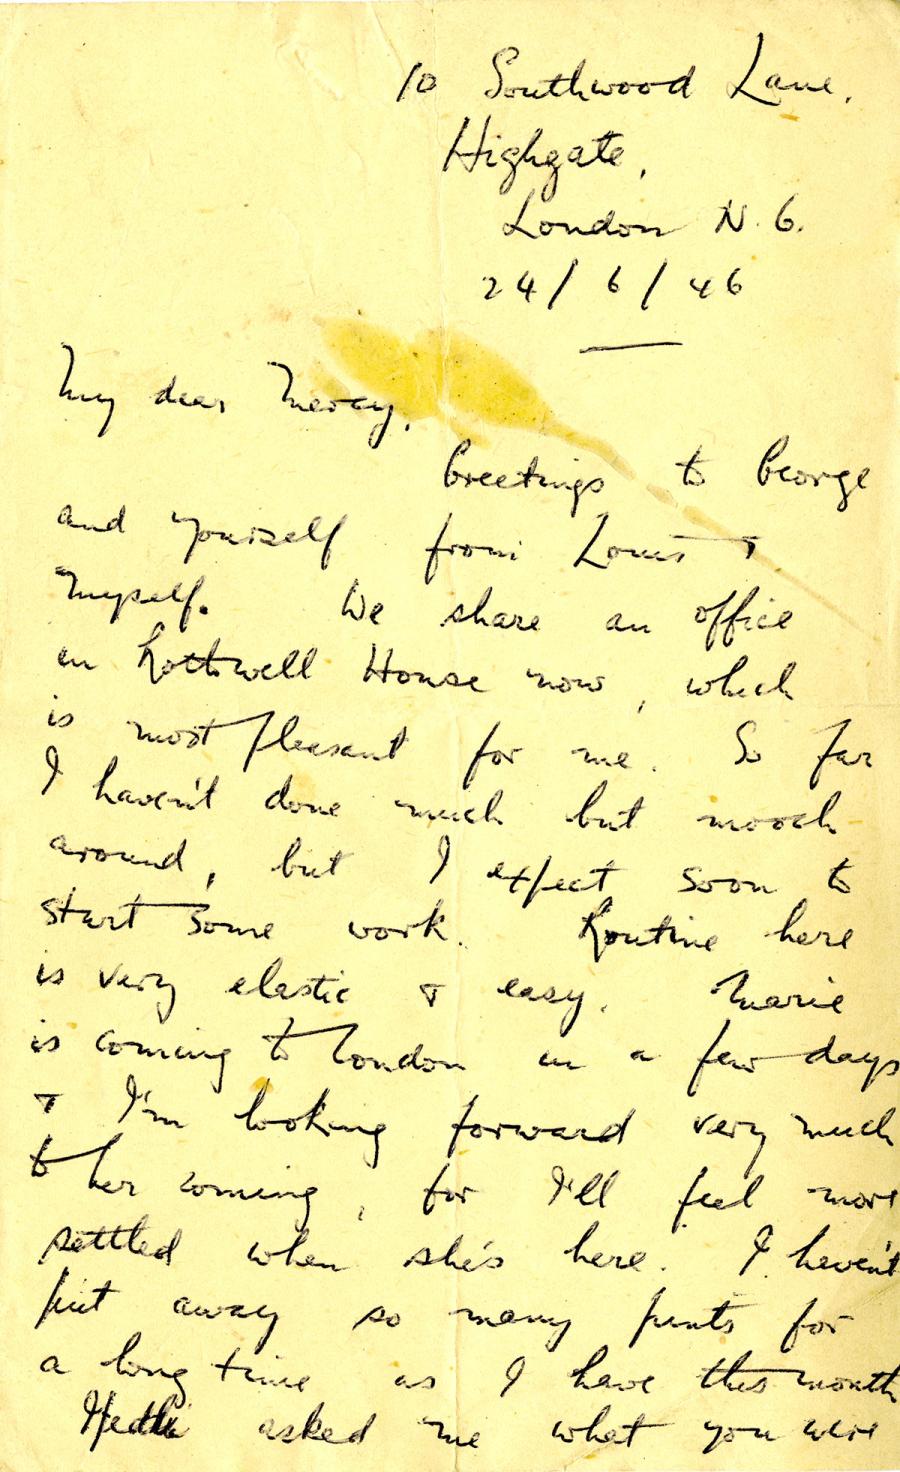 10 Southwood Lane.
Highgate,
London N. 6.
24/6/46
My dear Mercy,
Greetings to George
and yourself from Louis &
myself. We share an office
in Rothwell House now, which
is most pleasant for me. So far
I haven't done much but mooch
around, but I expect soon to
start some work. Routine here
is very elastic & easy. Marie
is coming to London in a few days
& I'm looking forward very much
to her coming, for I'll feel more
settled when she's here. I haven't
put away so many pints for
a long time as I have this month
asked me what you were